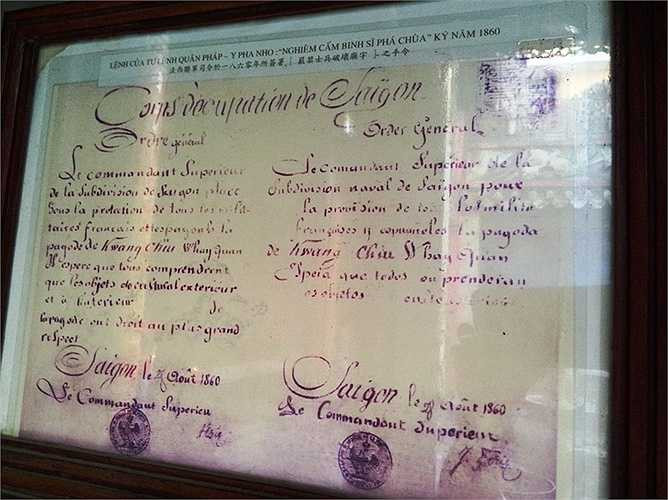 LỆNH CỦA TƯ LỆNH QUÂN PHÁP – Y PHA NHO : "NGHIÊM CẤM BINH SĨ PHÁ CHÙA" KÝ NĂM 1860
法西聯軍司令於一八六〇年所簽署「嚴禁士兵破壞廟宇」之手令
Corps d'occupation de Saïgon
Ordre général
Le commandant Superieur
de la Subdivision de Saigon place
Sous la protection de tous les mili-
taires français et espagnols la
pagode de Kwang Chiu Whay Quan
Il espere que tous comprendrent
que les objets de cultural exterieur
et à linterieur de
la pagode ont droit au plus grand
respect
Saïgon le 27 Août 1860
Le Commandant Superieu
Order Général
Le Comandant Supérieur de la
Subdivision naval de Saïgon poux
la provision de tos Los milita
françaises y españoles la pagoda
de Kwang Chiu Whay Quan
Speia que todos on prenderan
os objetos
Saïgon le 27 Août 1860
Le Commandant Superieur